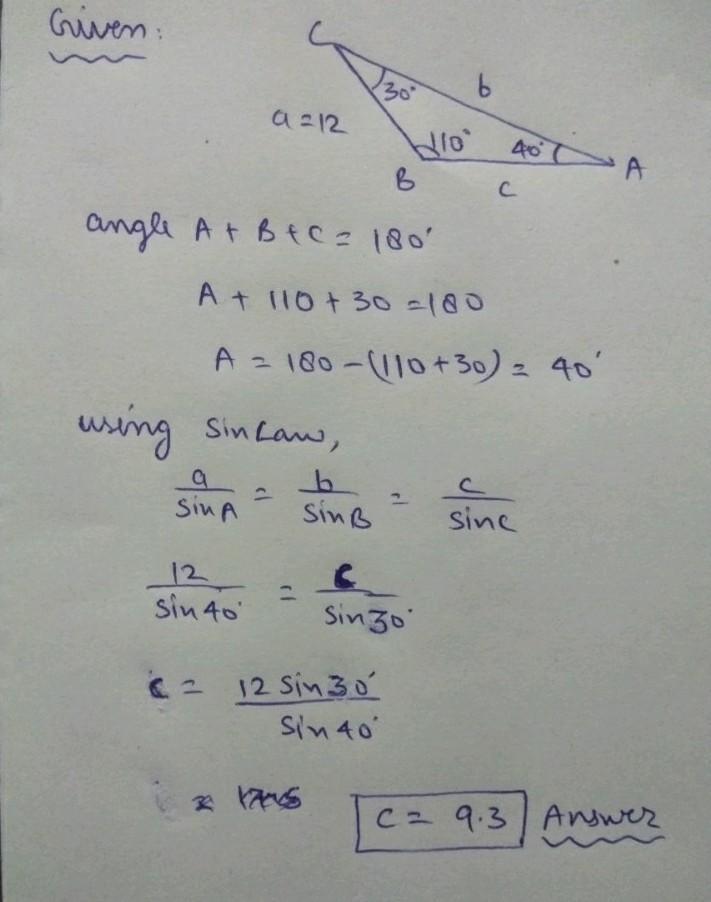 Given:
C
30°
b
a = 12
110°
40°
A
B
c
angle A + B + C = 180°
A + 110 + 30 = 180
A = 180 - (110 + 30) = 40°
using Sin Law,
a/sin A = b/sin B = c/sin c
12/sin 40° = c/sin 30°
c = 12 sin 30°/sin 40°
c = 9.3 Answer